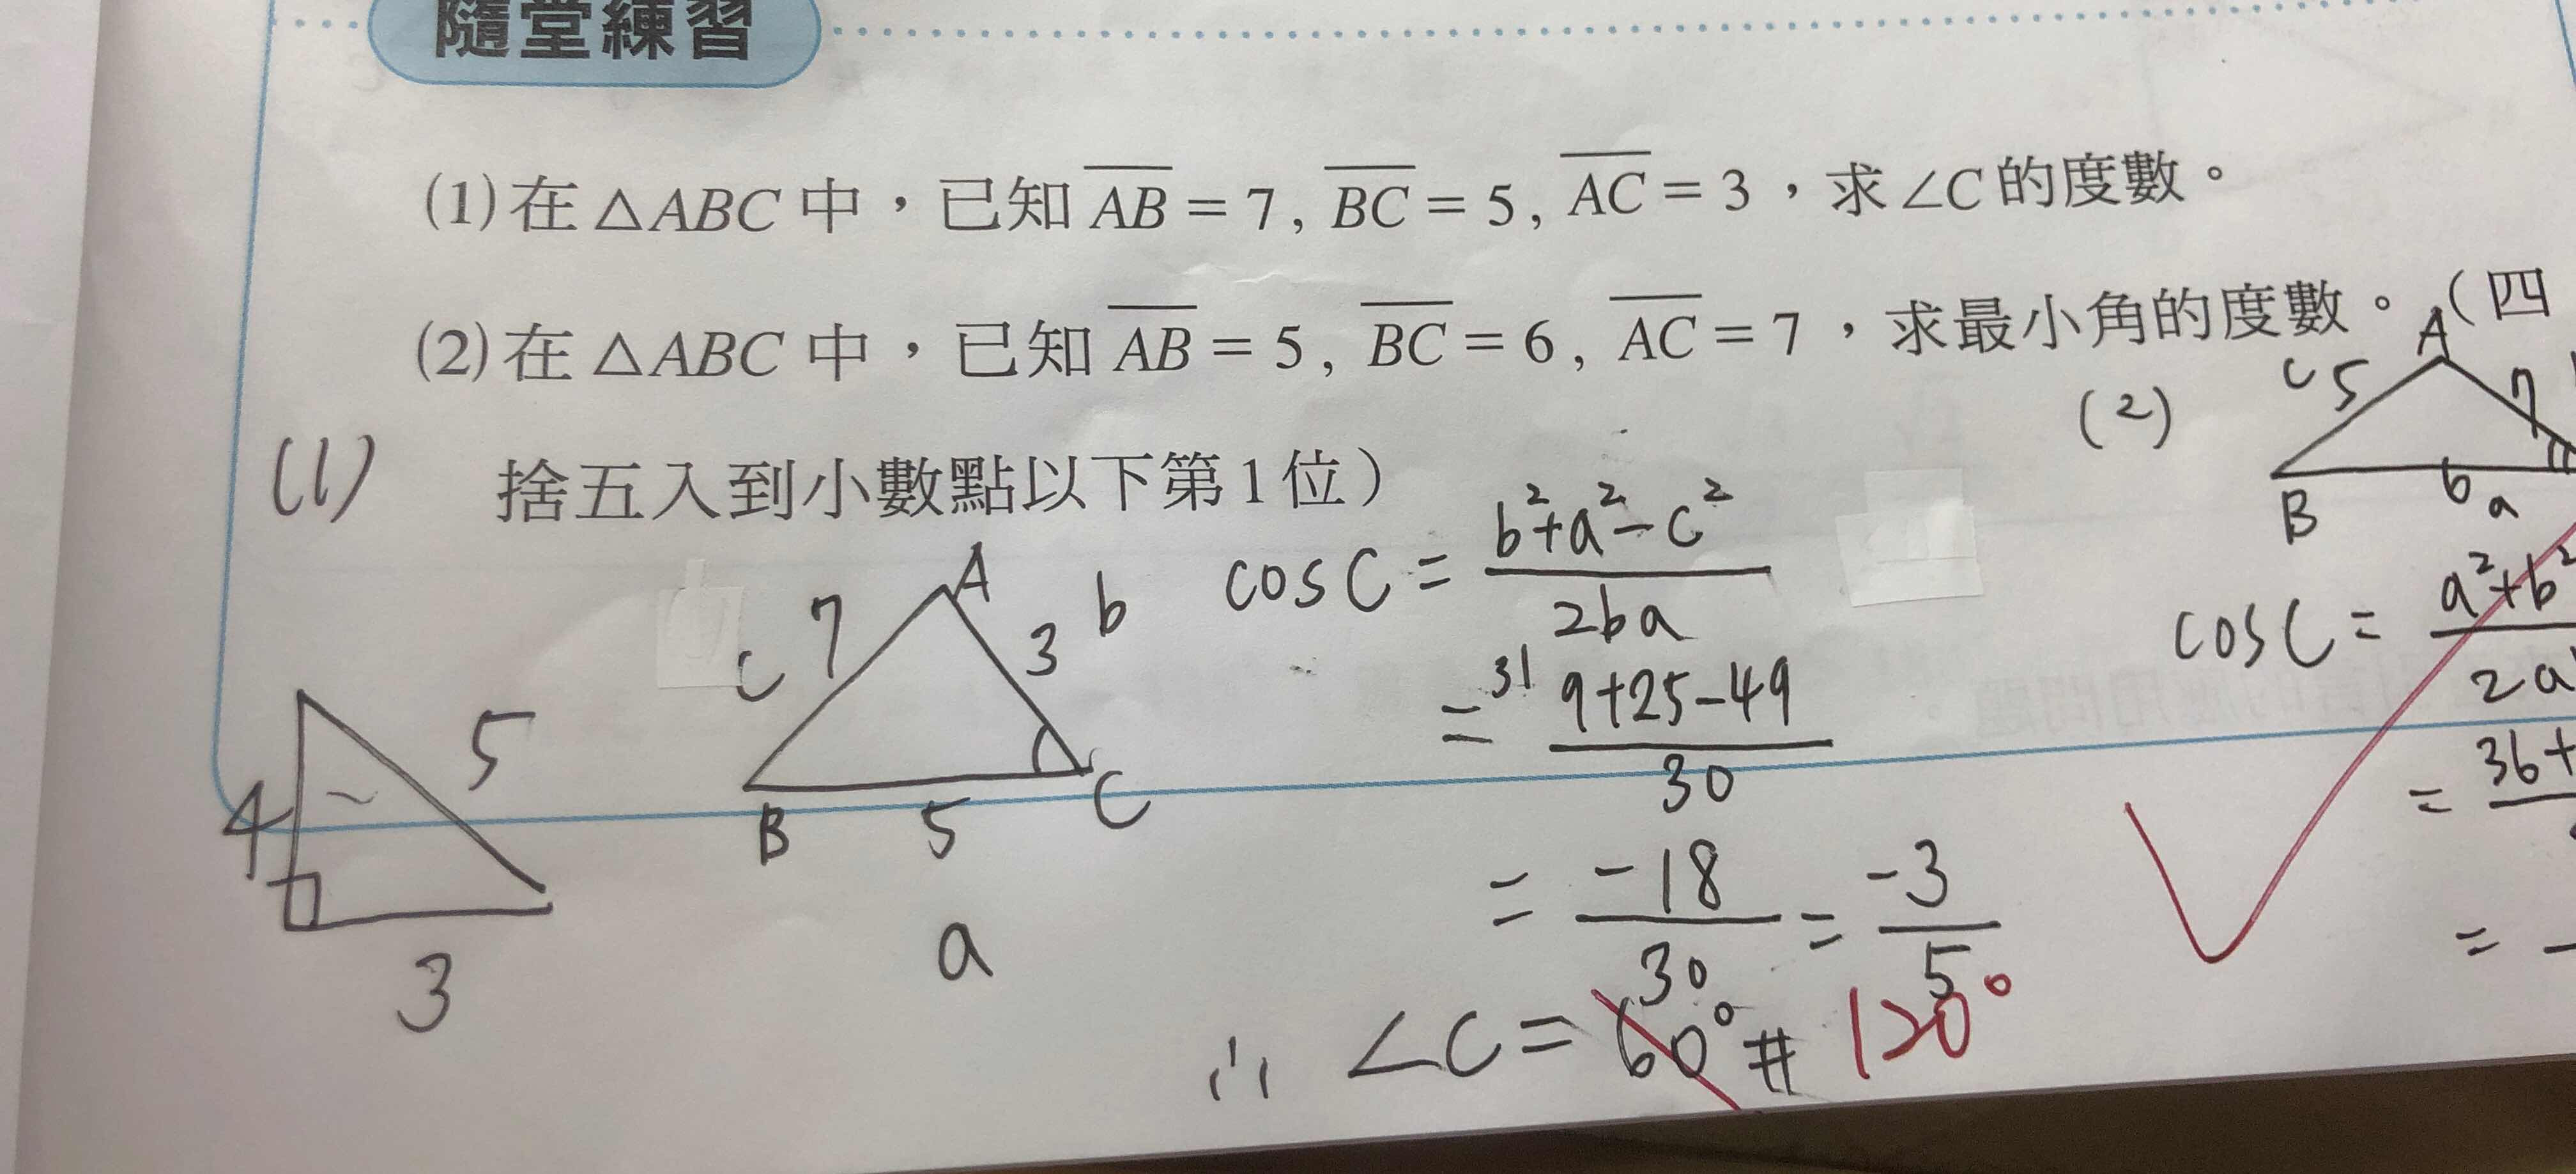 隨堂練習
(1)在△ABC中，已知AB=7, BC=5, AC=3，求∠C的度數。
(2)在△ABC中，已知AB=5, BC=6, AC=7，求最小角的度數。(四
捨五入到小數點以下第1位)
(1)
4
5
3
A
c 7
3 b
B
5
C
a
cosC = b²+a²-c² / 2ba
= 31 9+25-49 / 30
= -18 / 30 = -3 / 5
∴ ∠C = 60° # 120°
(2)
A
c 5
7
B
6 a
cosC = a²+b² / 2a
= 36+
=